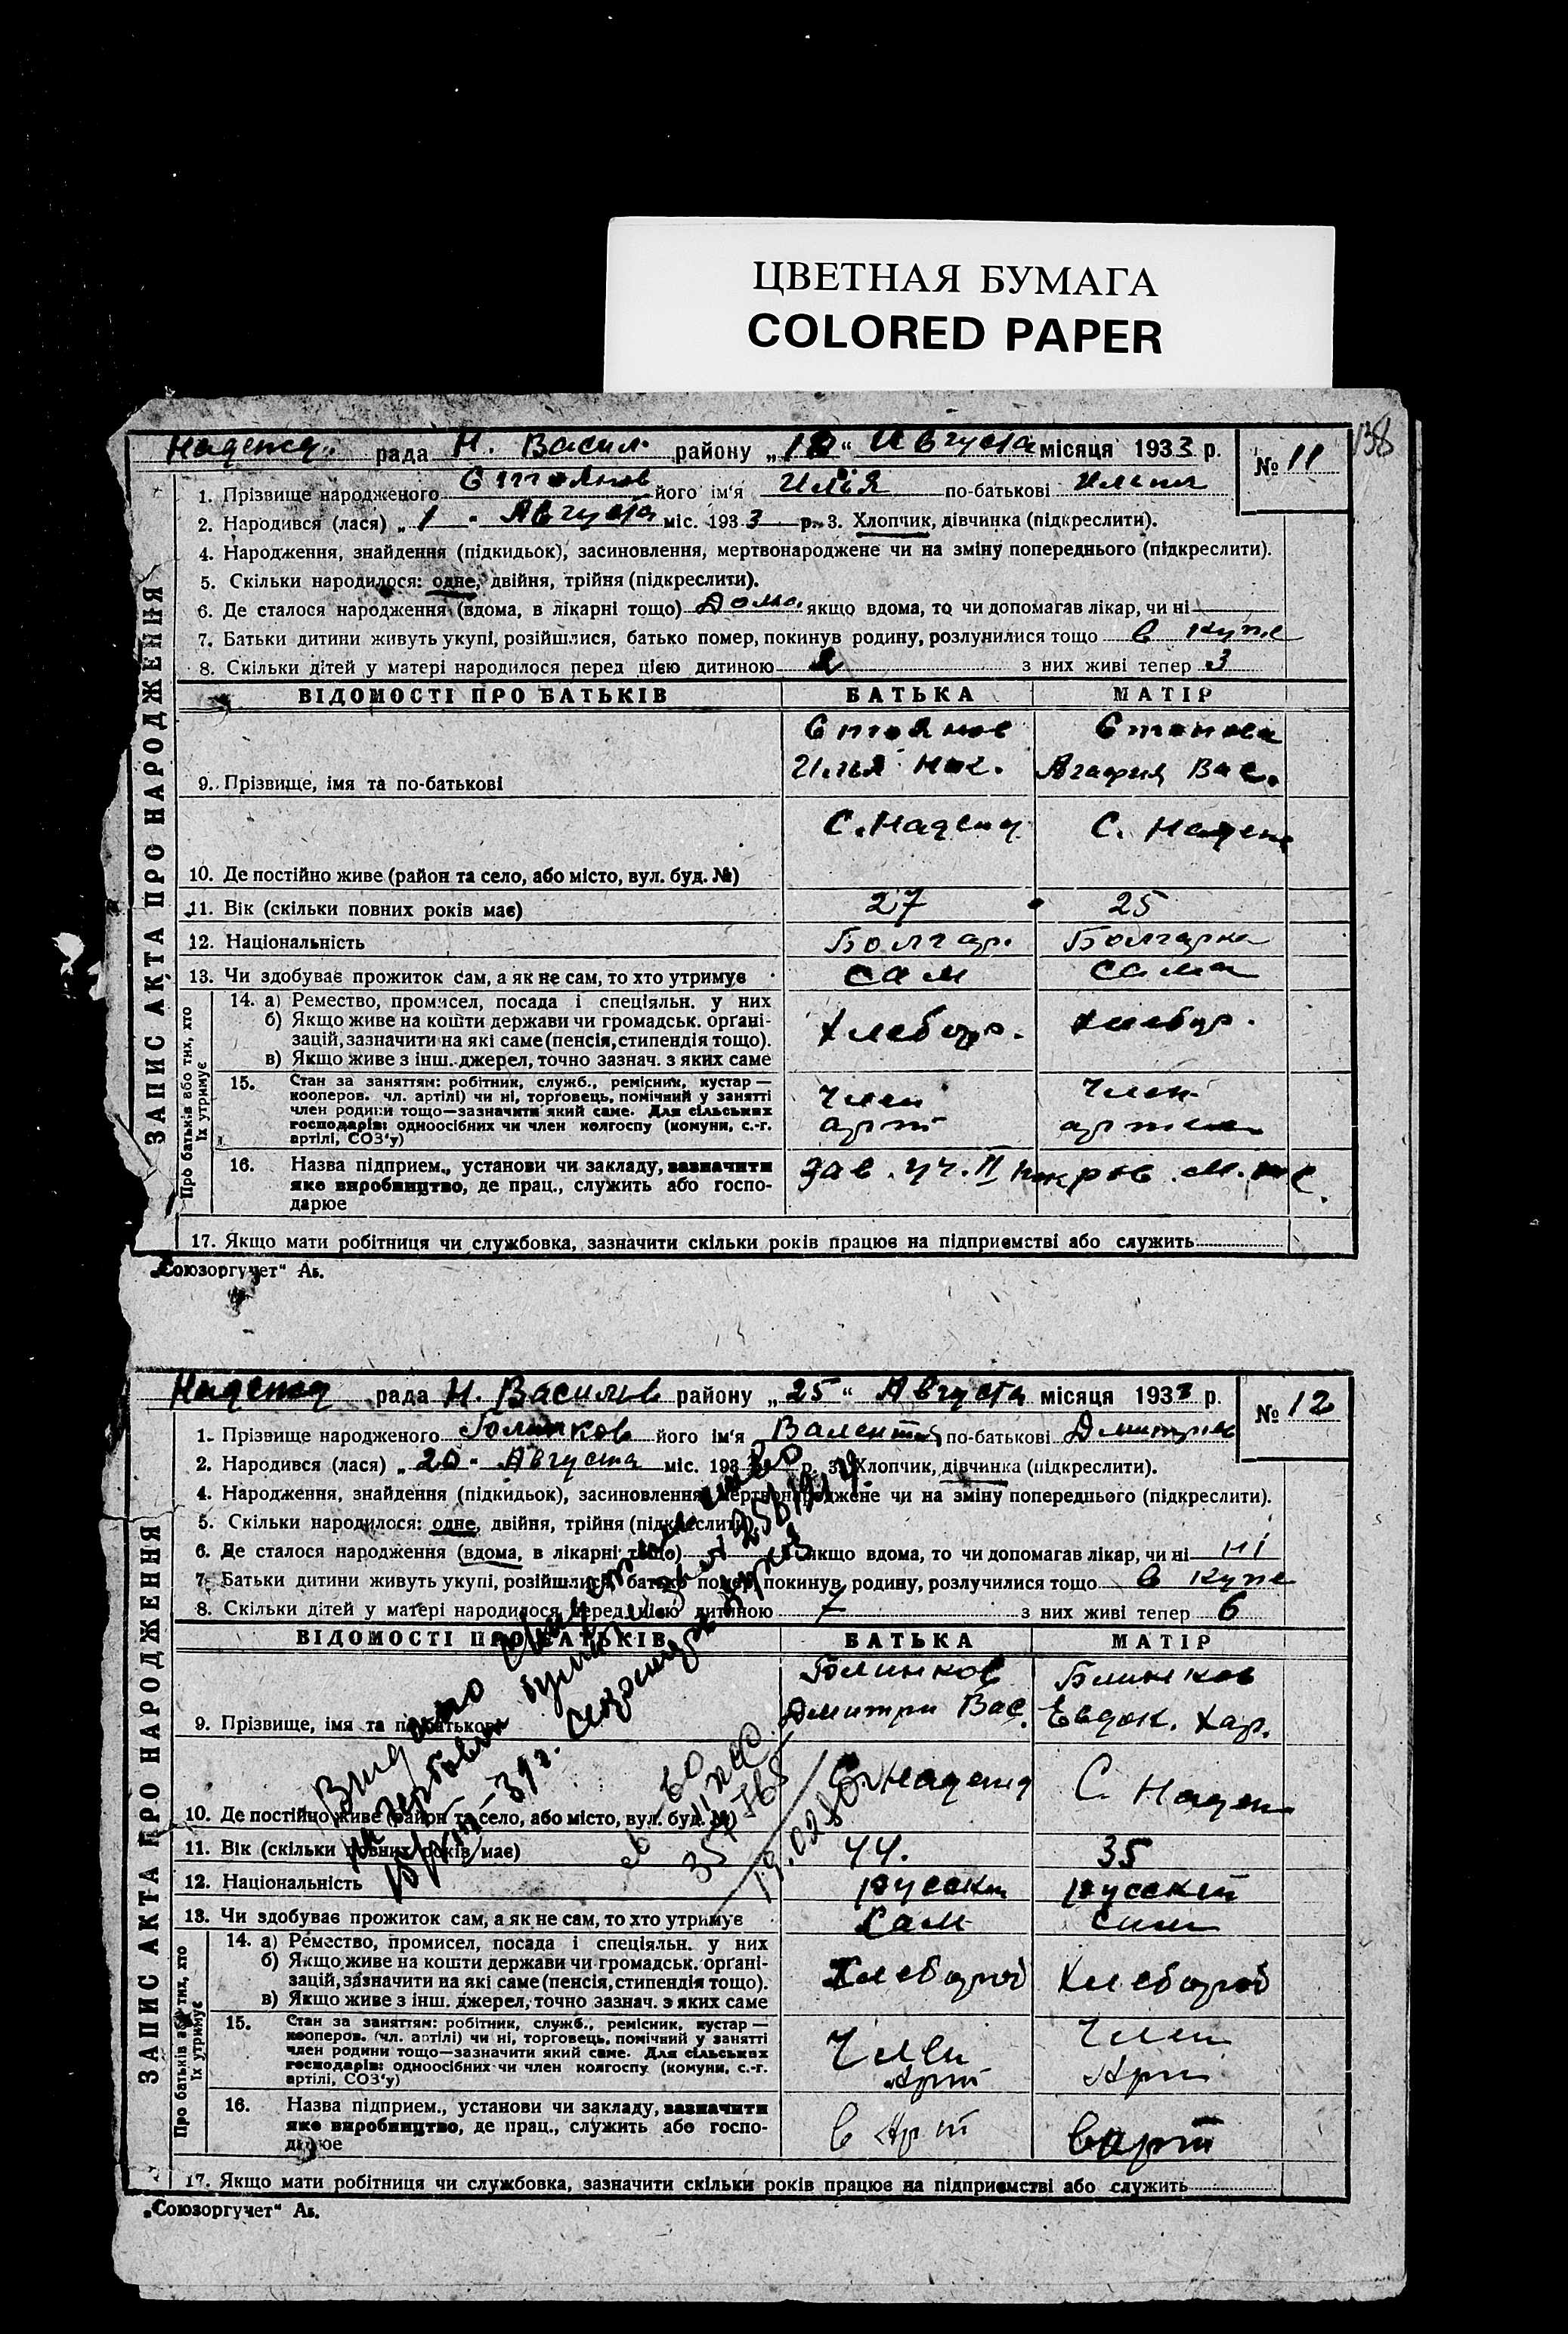 ЦВЕТНАЯ БУМАГА
COLORED PAPER
138
рада Н. Васил. району „10“ Августа місяця 1933 р. № 11
1. Прізвище народженого Стоянов його ім'я Илья по-батькові
2. Народився (лася) „1“ Августа міс. 1933 р. 3. Хлопчик, дівчинка (підкреслити).
4. Народження, знайдення (підкидьок), засиновлення, мертвонароджене чи на зміну попереднього (підкреслити).
5. Скільки народилося: одне, двійня, трійня (підкреслити).
6. Де сталося народження (вдома, в лікарні тощо) Дома якщо вдома, то чи допомагав лікар, чи ні
7. Батьки дитини живуть укупі, розійшлися, батько помер, покинув родину, розлучилися тощо в купе
8. Скільки дітей у матері народилося перед цією дитиною з них живі тепер 3
ВІДОМОСТІ ПРО БАТЬКІВ БАТЬКА МАТІР
Стоянов
Илья Агафия Вас.
9. Прізвище, імя та по-батькові
С. С.
10. Де постійно живе (район та село, або місто, вул. буд. №)
11. Вік (скільки повних років має) 27 25
12. Національність Болгар. Болгарка
13. Чи здобуває прожиток сам, а як не сам, то хто утримує сам сама
14. а) Ремество, промисел, посада і спеціяльн. у них
б) Якщо живе на кошти держави чи громадськ. органі-
зацій, зазначити на які саме (пенсія, стипендія тощо). Хлебор. Хлебор.
в) Якщо живе з інш. джерел, точно зазнач. з яких саме
15. Стан за заняттям: робітник, служб., ремісник, кустар—
кооперов. чл. артілі) чи ні, торговець, помічний у занятті
член родини тощо—зазначити який саме. Для сільських
господарів: одноосібних чи член колгоспу (комуни, с.-г.
артілі, СОЗ'у)
Член Член
арт
16. Назва підприєм., установи чи закладу, зазначити
яке виробництво, де прац., служить або госпо-
дарює
Зав. уч. II
17. Якщо мати робітниця чи службовка, зазначити скільки років працює на підприємстві або служить
ЗАПИС АКТА ПРО НАРОДЖЕННЯ
Про батьків або тих, хто
їх утримує
„Союзоргучет“ Аь.
рада Н. Василів району „25“ Августа місяця 1933 р № 12
1. Прізвище народженого його ім'я по-батькові
2. Народився (лася) „20“ Августа міс. 193 р. 3. Хлопчик, дівчинка (підкреслити).
4. Народження, знайдення (підкидьок), засиновлення, мертвонароджене чи на зміну попереднього (підкреслити).
5. Скільки народилося: одне, двійня, трійня (підкреслити).
6. Де сталося народження (вдома, в лікарні тощо) якщо вдома, то чи допомагав лікар, чи ні ні
7. Батьки дитини живуть укупі, розійшлися, батько помер, покинув родину, розлучилися тощо в купе
8. Скільки дітей у матері народилося перед цією дитиною 7 з них живі тепер 6
ВІДОМОСТІ ПРО БАТЬКІВ БАТЬКА МАТІР
Дмитри Вас. Евдок. Хар.
9. Прізвище, імя та по-батькові
С. С.
10. Де постійно живе (район та село, або місто, вул. буд. №)
11. Вік (скільки повних років має) 44. 35
12. Національність
13. Чи здобуває прожиток сам, а як не сам, то хто утримує сам сам
14. а) Ремество, промисел, посада і спеціяльн. у них
б) Якщо живе на кошти держави чи громадськ. органі-
зацій, зазначити на які саме (пенсія, стипендія тощо). Хлебороб Хлебороб
в) Якщо живе з інш. джерел, точно зазнач. з яких саме
15. Стан за заняттям: робітник, служб., ремісник, кустар—
кооперов. (чл. артілі) чи ні, торговець, помічний у занятті
член родини тощо—зазначити який саме. Для сільських
господарів: одноосібних чи член колгоспу (комуни, с.-г.
артілі, СОЗ'у)
Член Член
Арт Арт
16. Назва підприєм., установи чи закладу, зазначити
яке виробництво, де прац., служить або госпо-
дарює
в Арт в арт
17. Якщо мати робітниця чи службовка, зазначити скільки років працює на підприємстві або служить
ЗАПИС АКТА ПРО НАРОДЖЕННЯ
Про батьків або тих, хто
їх утримує
„Союзоргучет“ Аь.